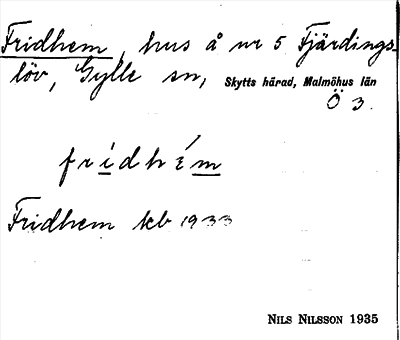 Fridhem, hus å nr 5 Fjärdings-
löv, Gylle sn, Skytts härad, Malmöhus län
Ö 3.
fridhém
Fridhem tkb 1933
NILS NILSSON 1935